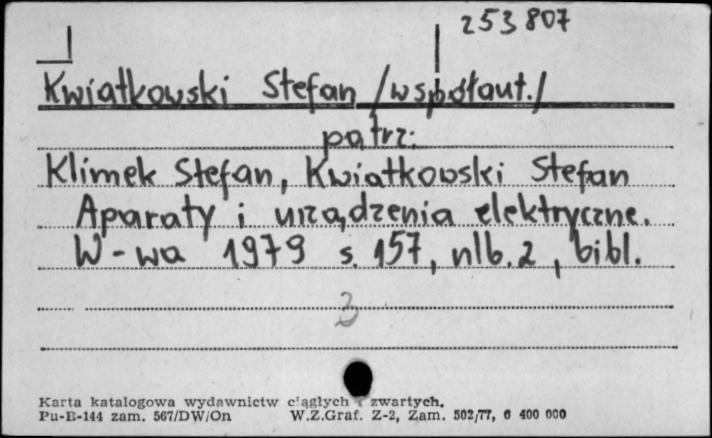 253807
Kwiatkowski Stefan /współaut./
patrz:
Klimek Stefan, Kwiatkowski Stefan
Aparaty i urządzenia elektryczne.
W-wa 1979 s. 157, nlb. 2, bibl.
3
Karta katalogowa wydawnictw ciągłych i zwartych.
Pu-B-144 zam. 567/DW/On W.Z.Graf. Z-2, Zam. 502/77, 6 400 000